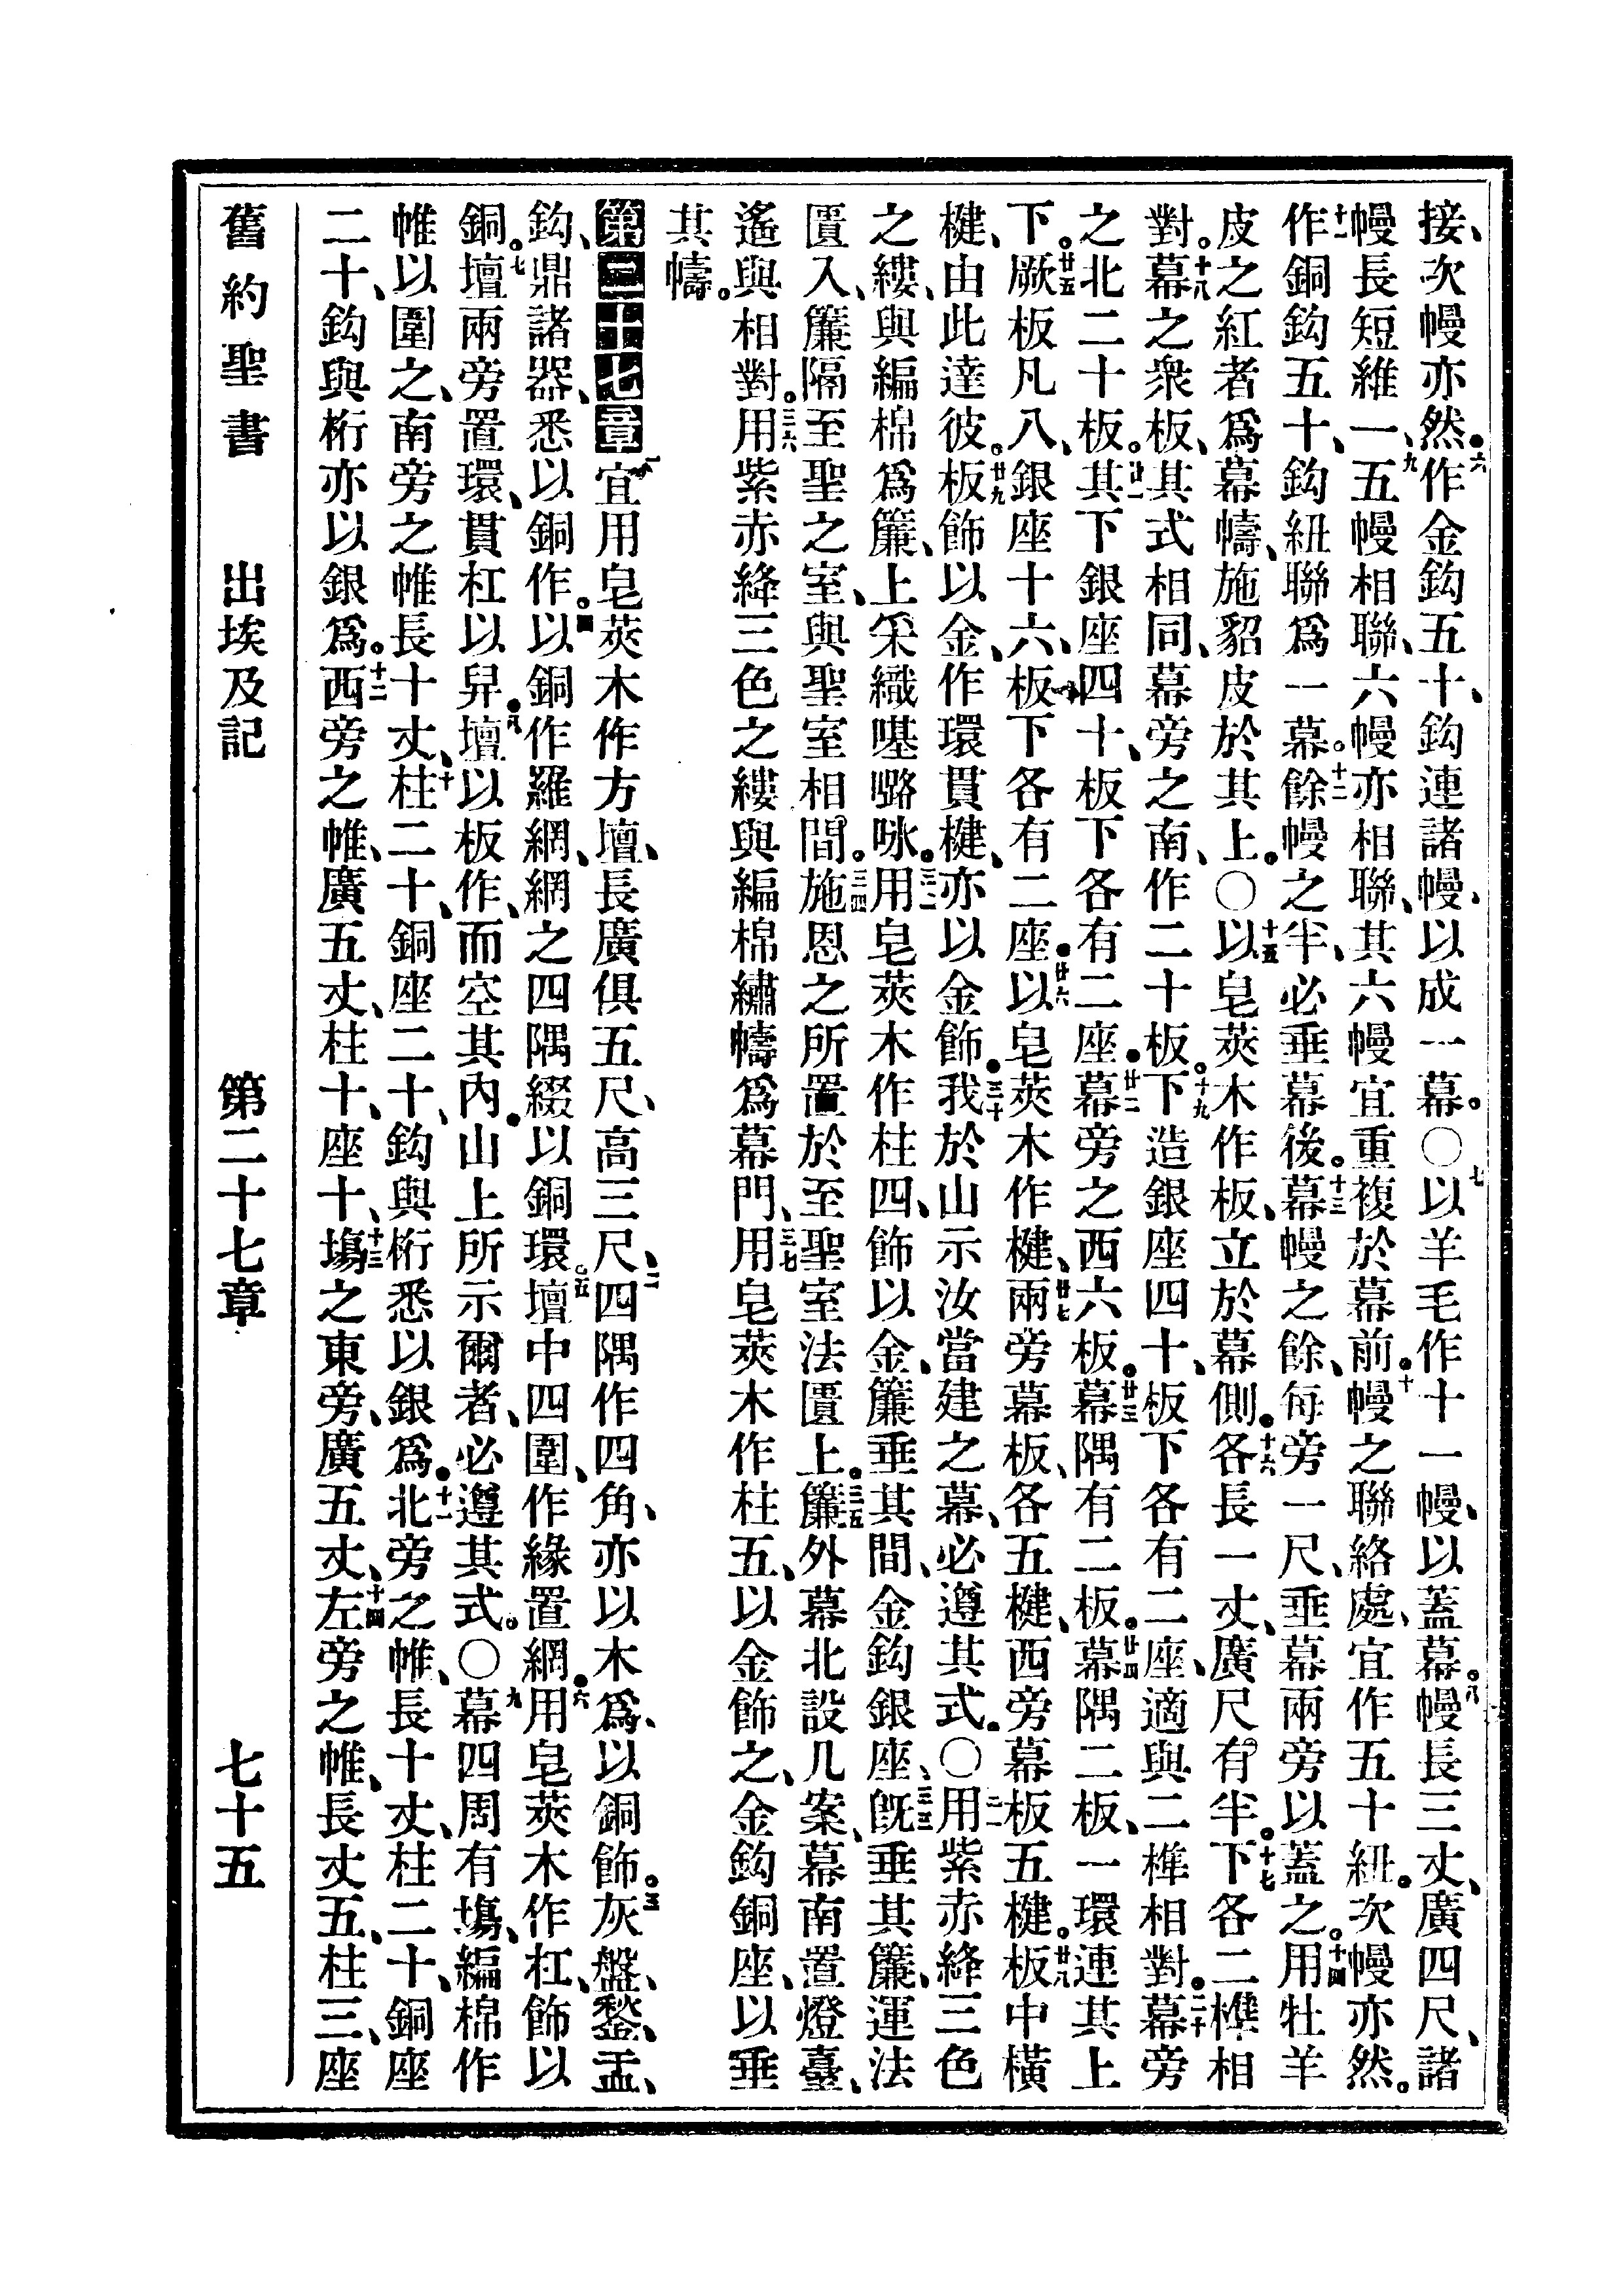 接、次幔亦然。六作金鈎五十、鈎連諸幔、以成一幕。〇七以羊毛作十一幔、以蓋幕。八幔長三丈、廣四尺、諸
幔長短維一、九五幔相聯、六幔亦相聯、其六幔宜重複於幕前。十幔之聯絡處、宜作五十紐。次幔亦然。
十一作銅鈎五十、鈎紐聯爲一幕。十二餘幔之半、必垂幕後。十三幕幔之餘、每旁一尺、垂幕兩旁以蓋之。十四用牡羊
皮之紅者爲幕幬、施貂皮於其上。〇十五以皂莢木作板、立於幕側。十六各長一丈、廣尺有半。十七下各二榫相
對。十八幕之衆板、其式相同、幕旁之南、作二十板。十九下造銀座四十、板下各有二座、適與二榫相對。二十幕旁
之北二十板。廿一其下銀座四十、板下各有二座。廿二幕旁之西六板。廿三幕隅有二板。廿四幕隅二板、一環連其上
下。廿五厥板凡八、銀座十六、板下各有二座。廿六以皂莢木作楗、廿七兩旁幕板、各五楗、西旁幕板五楗。廿八板中橫
楗、由此達彼。廿九板飾以金、作環貫楗、亦以金飾。三十我於山示汝當建之幕、必遵其式。〇三一用紫赤絳三色
之縷、與編棉爲簾、上采織𠼻嚧咏。三二用皂莢木作柱四、飾以金、簾垂其間、金鈎銀座、三三旣垂其簾、運法
匱入、簾隔至聖之室、與聖室相間。三四施恩之所置於至聖室法匱上。三五簾外幕北設几案、幕南置燈臺、
遙與相對。三六用紫赤絳三色之縷與編棉繡幬爲幕門、三七用皂莢木作柱五、以金飾之、金鈎銅座、以垂
其幬。
第二十七章一宜用皂莢木作方壇、長廣俱五尺、高三尺、二四隅作四角、亦以木爲、以銅飾。三灰盤、鍫、盂、
鈎、鼎諸器、悉以銅作。四以銅作羅網、網之四隅綴以銅環。五壇中四圍、作緣置網。六用皂莢木作杠、飾以
銅。七壇兩旁置環、貫杠以舁。八壇以板作、而空其內。山上所示爾者、必遵其式。〇九幕四周有塲、編棉作
帷以圍之、南旁之帷長十丈、十柱二十、銅座二十、鈎與桁悉以銀爲。十一北旁之帷、長十丈、柱二十、銅座
二十、鈎與桁亦以銀爲。十二西旁之帷、廣五丈、柱十、座十、十三塲之東旁、廣五丈、十四左旁之帷、長丈五、柱三、座
舊約聖書 出埃及記 第二十七章 七十五